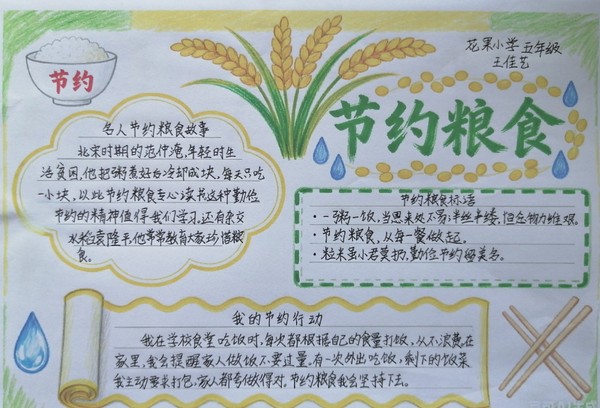 节约
花果小学 五年级
王佳艺
节约粮食
名人节约粮食故事
北宋时期的范仲淹,年轻时生
活贫困,他把粥煮好后冷却成块,每天只吃
一小块,以此节约粮食专心读书这种勤俭
节约的精神值得我们学习,还有杂交
水稻袁隆平,他常常教育大家珍惜粮
食。
节约粮食标语
·一粥一饭,当思来处不易;半丝半缕,恒念物力维艰。
·节约粮食,从每一餐做起。
·粒米虽小君莫扔,勤俭节约留美名。
我的节约行动
我在学校食堂吃饭时,每次都根据自己的食量打饭,从不浪费在
家里,我会提醒家人做饭不要过量。有一次外出吃饭,剩下的饭菜
我主动要来打包,家人都夸做得对,节约粮食我会坚持下去。